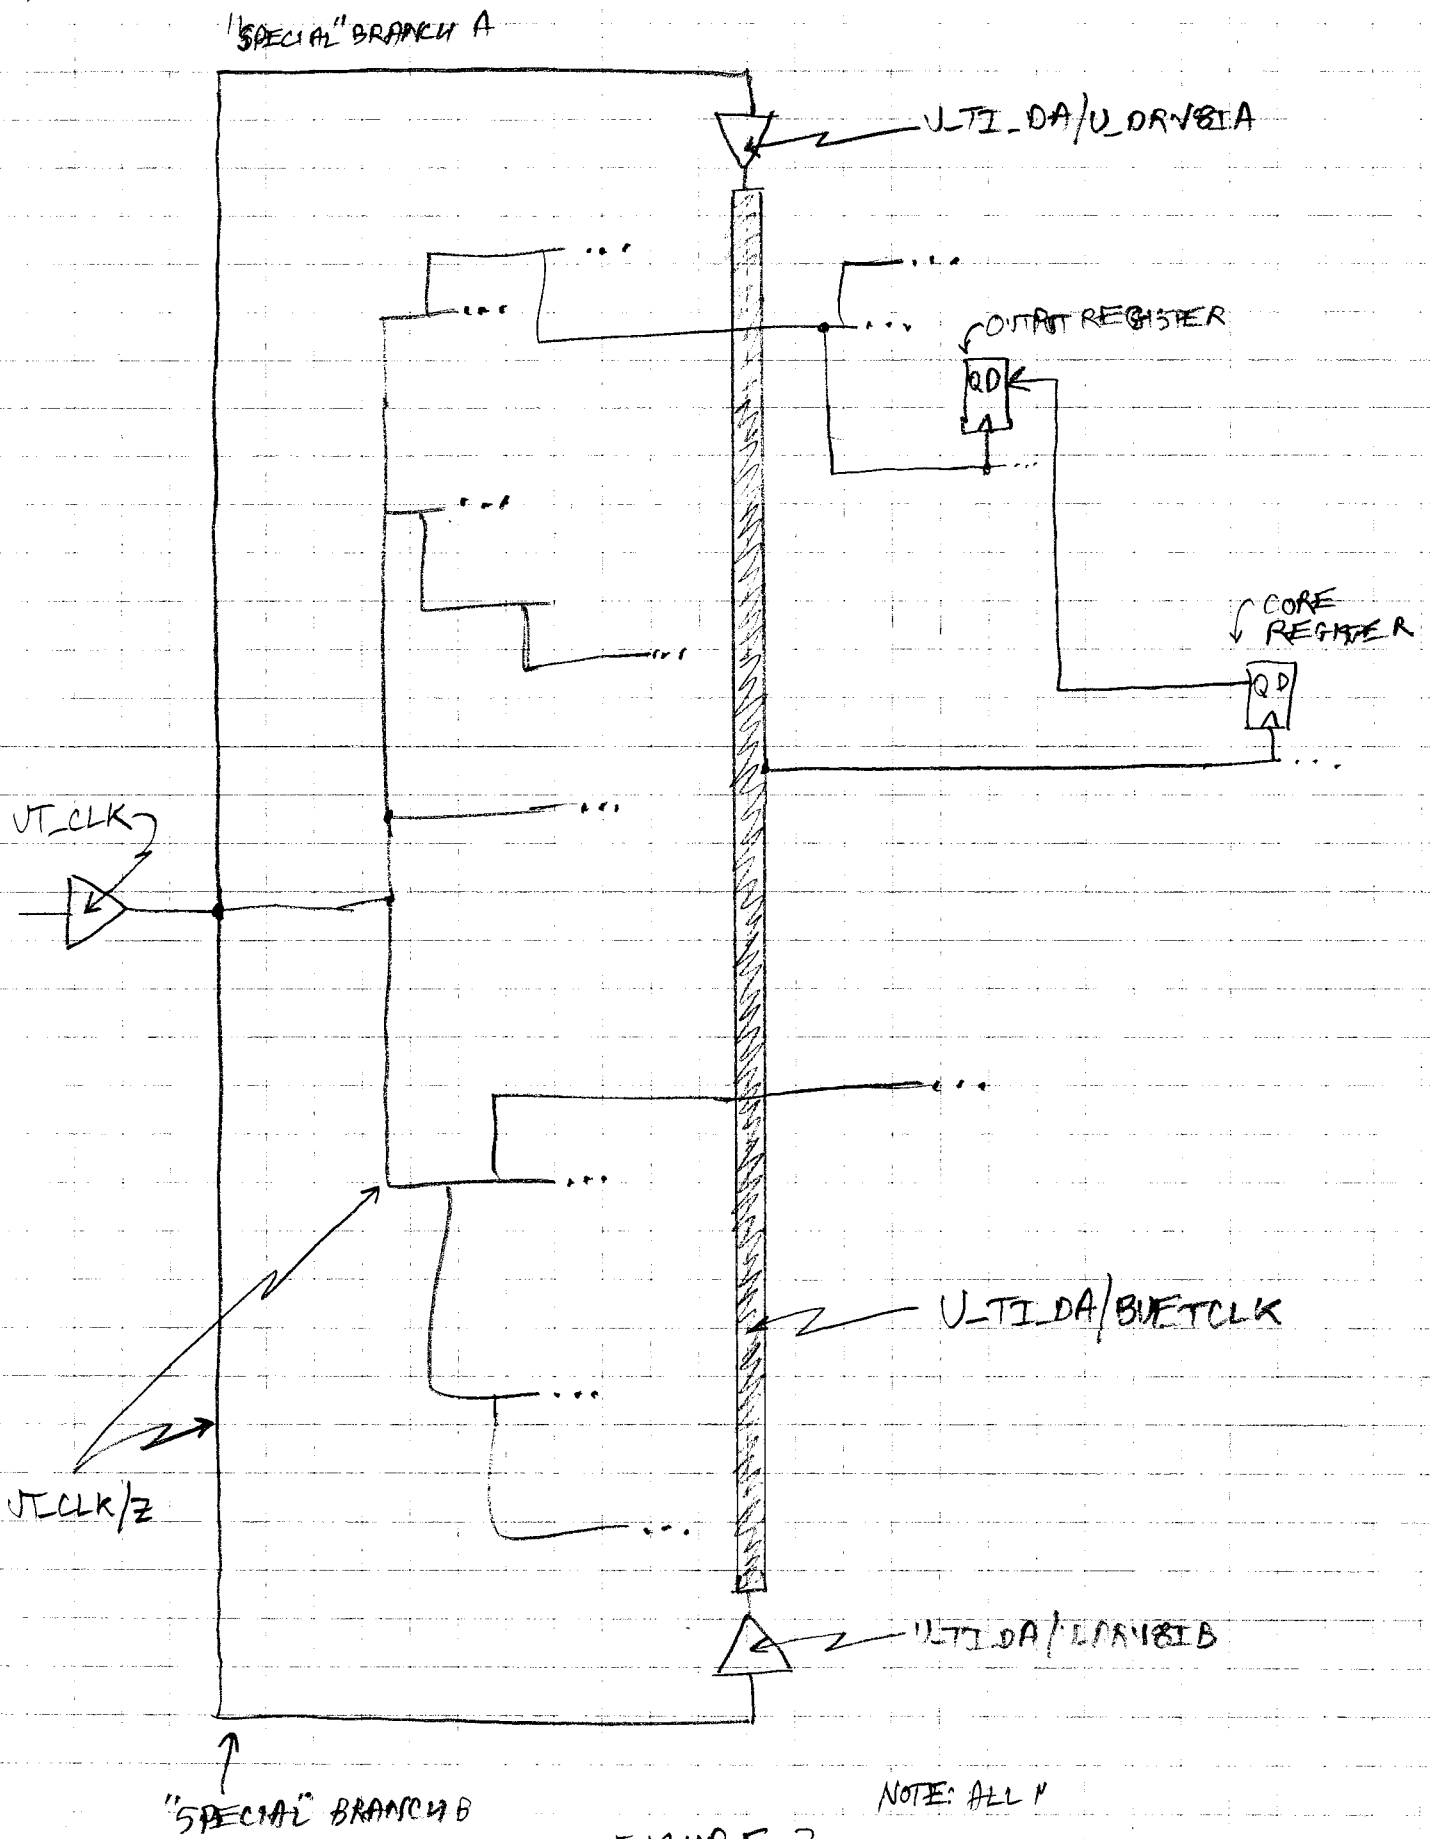 "SPECIAL" BRANCH A
U_TI_DA/U_DRV8IA
...
...
...
...
OUTPUT REGISTER
QD
...
...
CORE
REGISTER
...
QD
...
UT_CLK
...
...
...
U_TI_DA/BUFTCLK
...
UT_CLK/Z
...
"SPECIAL" BRANCH B
NOTE: ALL